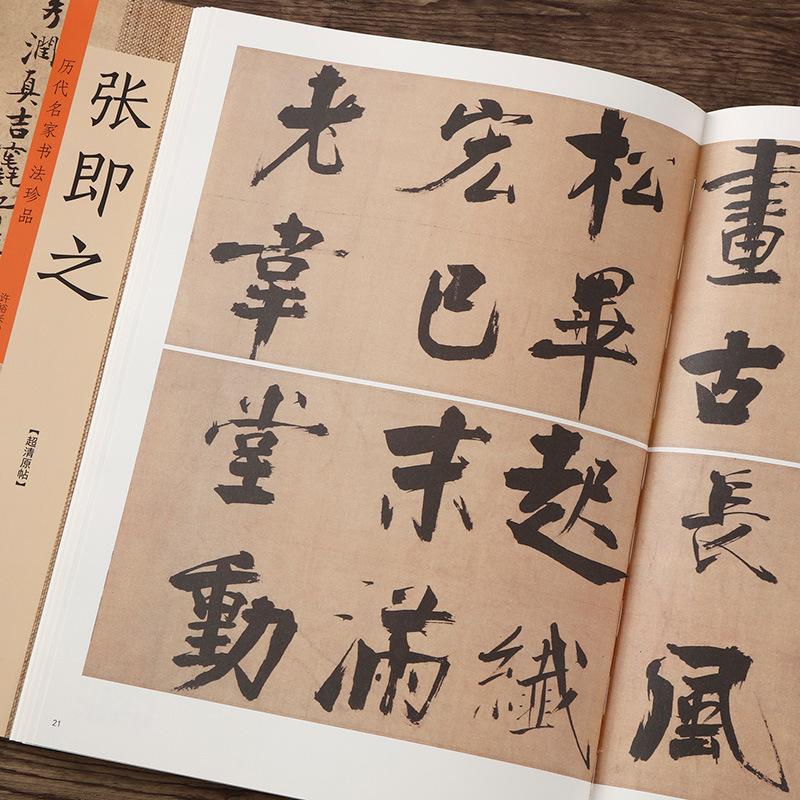 畫古
松畢
宏已
老韋
長風
起纖
末滿
堂動
21
张即之
历代名家书法珍品
【超清原帖】
潤真吉